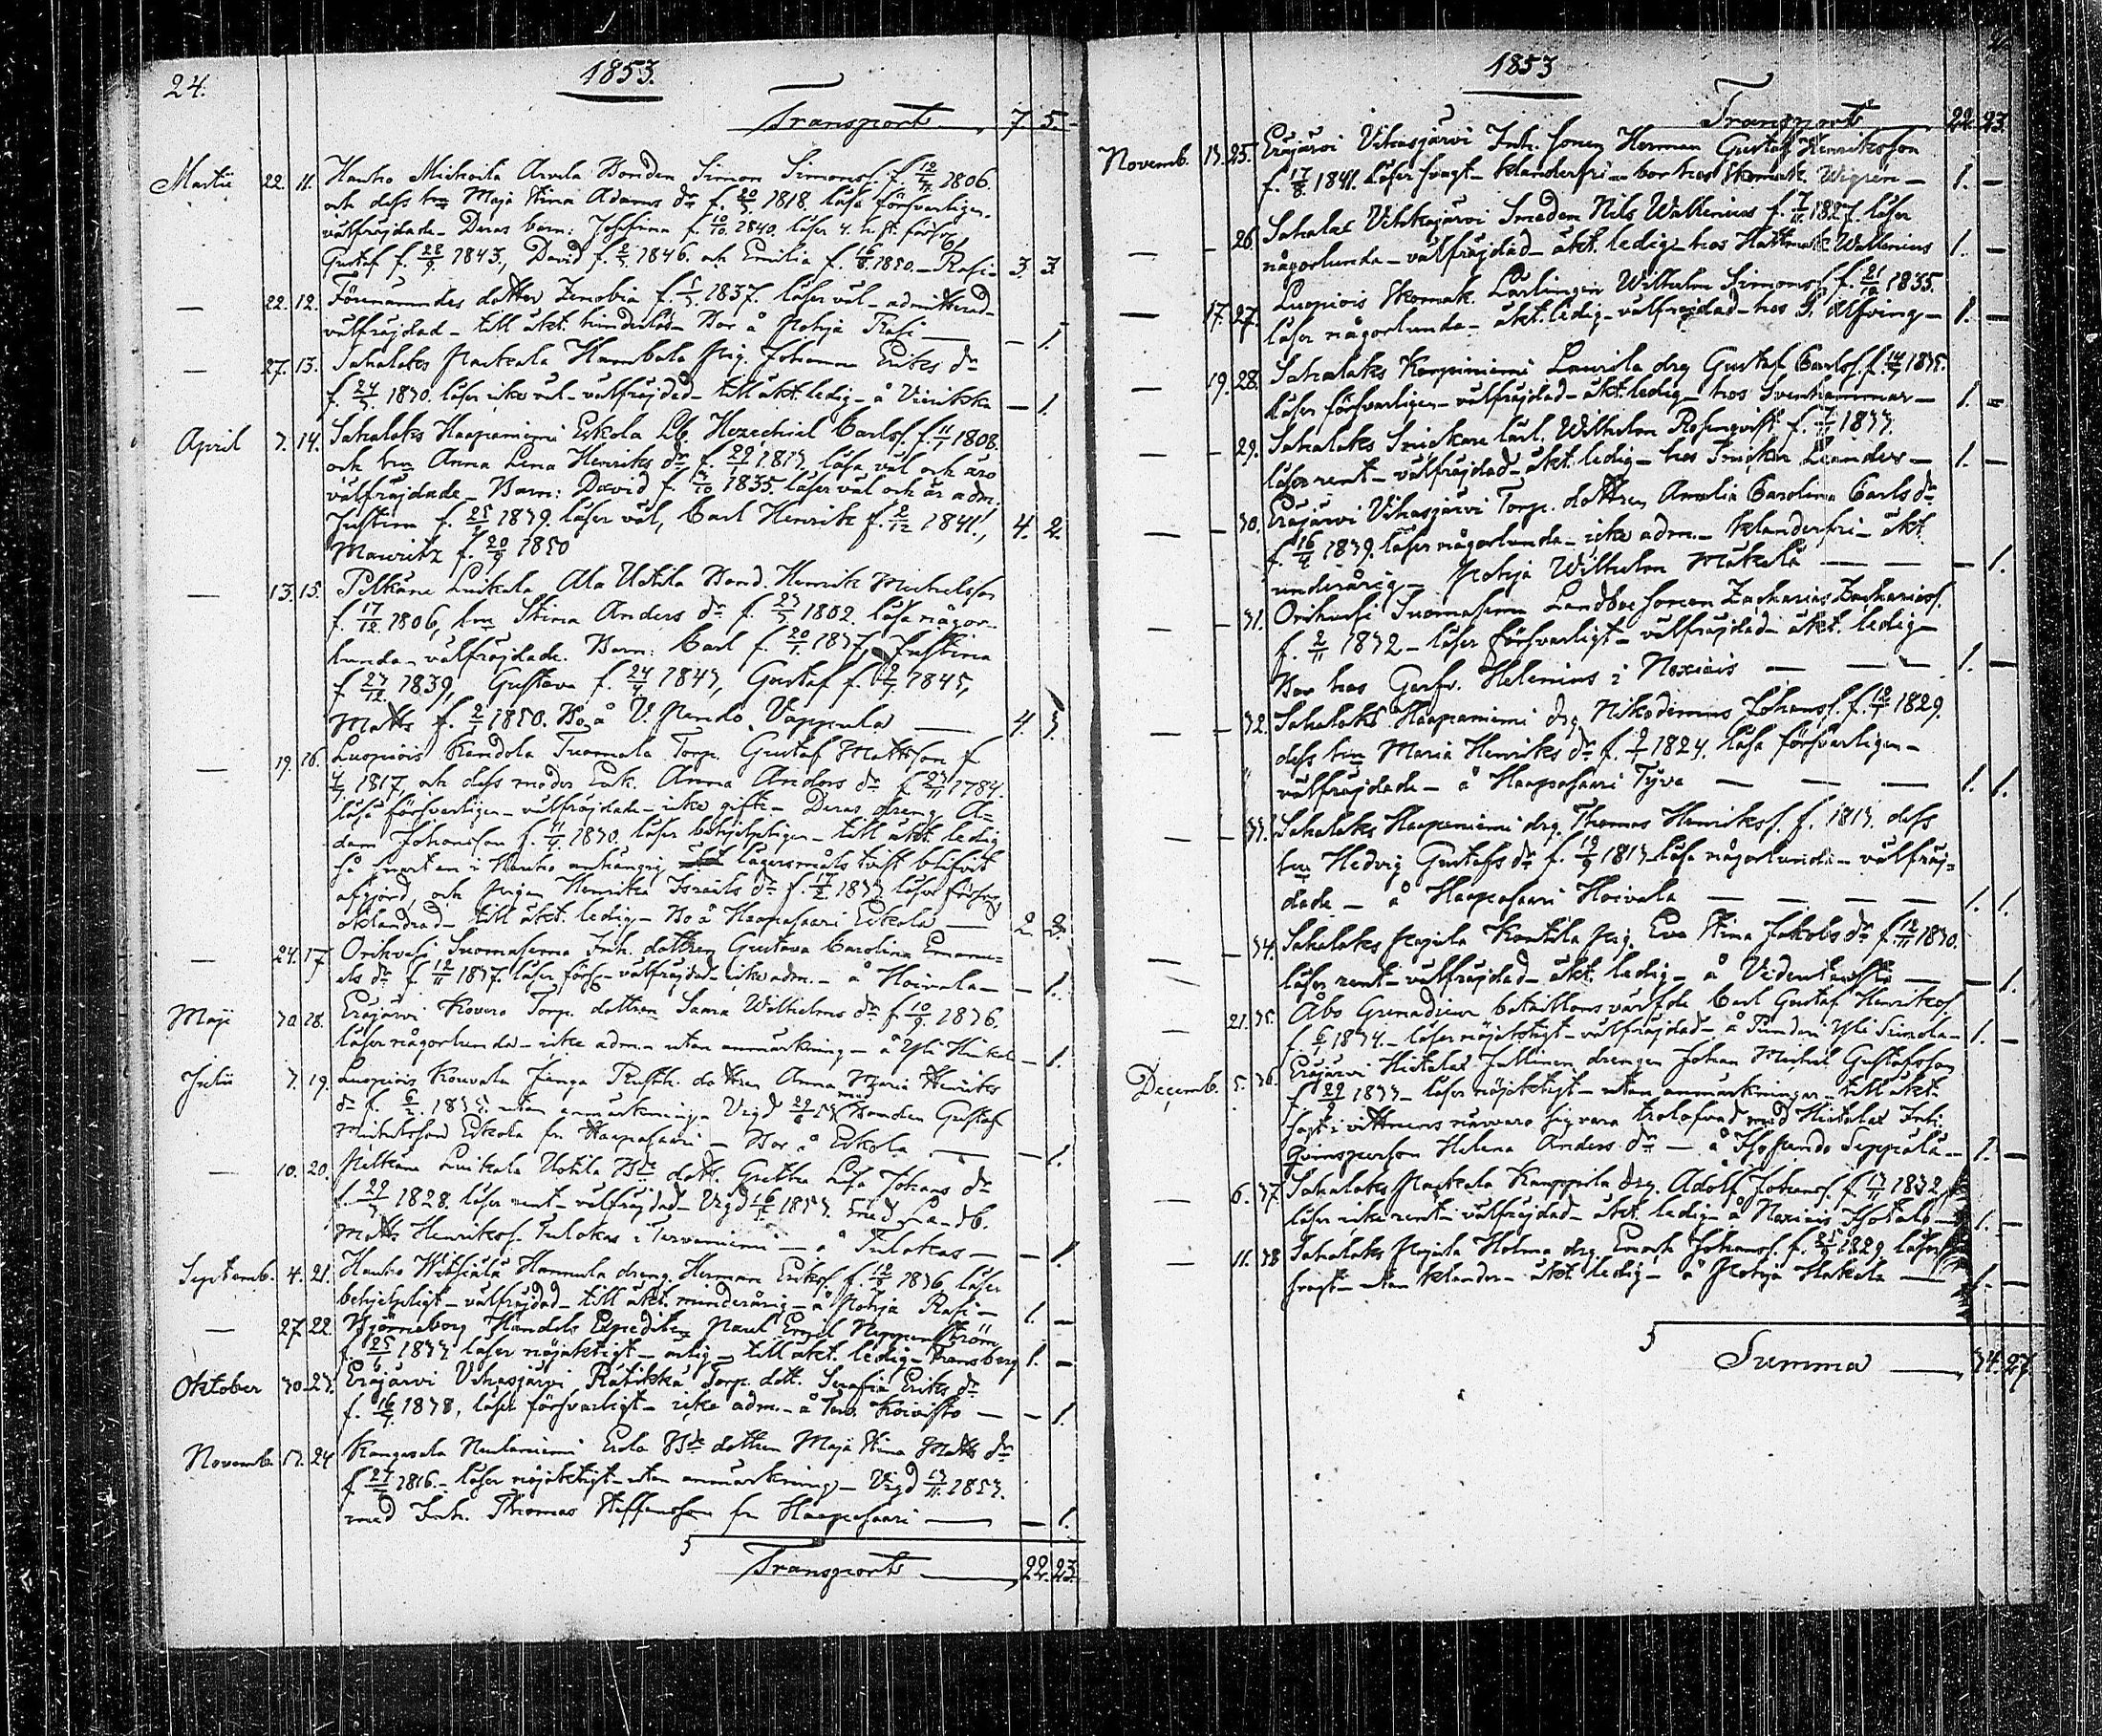 24.
1853.
Transport 7. 5.
Martii 22. 11. Hauho Mickoila Arvela Bonden Simon Simonss. f. 12/ 1806.
och dess hu Maja Stina Adams dr f. 20/ 1818. läsa försvarligen.
välfräjdade – Deras barn: Josefina f. 10/10 1840. läser
Gustaf f. 22/9 1843, David f. 2/ 1846. och Emilia f. 16/8 1850 – Rasi – 3. 3.
— 22. 12. Förenämndes dotter Zenobia f. 1837. läser väl – admitterad –
välfräjdad – till äkt. hinderlös – Bor å Pohja Rasi — – 1.
— 27. 13. Sahalaks Pakkala Humbala Pig. Johanna Eriks dr
f. 24/ 1830. läser icke väl – välfräjdad – till äkt. ledig – å — 1.
April 7. 14. Sahalaks Haapaniemi Eskola Lb. Hezechiel Carlss. f. 11/ 1808.
och hu Anna Lena Henriks dr f. 29/ 1813. läsa väl och äro
välfräjdade – Barn: David f. /10 1835. läser väl och är adm.
Justina f. 25/ 1839. läser väl, Carl Henrik f. 2/12 1841, 4. 2.
Mauritz f. 20/9 1850
— 13. 15. Pelkäne Luikala Ala Uotila Bond. Henrik Michelsson
f. 17/12 1806, hu Stina Anders dr f. 23/ 1802. läsa någor-
lunda – välfräjdade. Barn: Carl f. 20/1 1837, Justina
f. 27/12 1839, Gustava f. 24/4 1843, Gustaf f. 1845,
Matts f. 2/ 1850. Bo å V. Pendo Vappula — 4. 3.
— 19. 16. Luopiois Kandola Tuomala Torp. Gustaf Mattsson f
1817, och dess moder Enk. Anna Anders dr f 23/11 1784.
läsa försvarligen – välfräjdade – icke gifte – Deras dreng A=
dam Johansson f. 1830. läser behjelpligen – till äkt. ledig
så snart en i Hauho anhängig lägersmåls tvist blifvit
afgjord, och pigan Henrika Israels dr f. 1833 läser försv.
oklandrad – till äkt. ledig – Bo å Haapasaari Eskola — 2. 2.
— 24. 17. Orihvesi Suomasema Inh. dottren Gustava Carolina Emanu=
els dr f. 12/11 1837. läser förs. – välfräjdad – icke adm. – å Hoivala – – 1.
Maji 30. 18. Eräjärvi Kovero Torp. dottren Sanna Wilhelms dr f. 10/9 1836.
läser någorlunda – icke adm. – utan anmärkning – å Yli — 1.
Julii 7. 19. Luopiois Kouvala dottren Anna Maria Henriks
dr f. 6/2 183 utan anmärkninga Vigd 29/6 53 med Bonden Gustaf
Michelsson Eskola fr Haapasaari – Bor å Eskola — – 1.
— 10. 20. Pälkäne Luikala Uotila Bde dott. Gretha Lisa Johans dr
f. 29/ 1828. läser rent – välfräjdad – Vigd 16/ 1853. med Landb.
Matts Henrikss. Tulokas i Tervaniemi – å Tulokas — — 1.
Septemb. 4. 21. Hauho Wihiälä Hannula dreng Herman Erikss. f. 12/ 1836 läser
behjelpligt – välfräjdad – till äkt. minderårig – å Pohja Rasi – 1. –
— 27. 22. Björneborg Handels Expediten Paul
f. 25/6 1833 läser nöjaktigt – ärlig – till äkt. ledig – Fransberg 1. –
Oktober 30. 23. Eräjärvi Vihasjärvi Rätikkä Torp. dott. Serafia Eriks dr
f. 16/ 1838, läser försvarligt – icke adm. – å Torp. Koivisto — — 1.
Novemb. 13. 24 Kangasala Neulaniemi Erola Bde dottren Maja Stina Matts dr
f. 24/ 1816. – läser nöjaktigt – utan anmärkning – Vigd 13/11 1853.
med Inh. Thomas Steffansson fr Haapasaari — — 1.
Transport — 22. 23.
1853
Transport 22. 23.
Novemb. 13. 25. Eräjärvi Vihasjärvi Inh. sonen Herman Gustaf Henriksson
f. 17/8 1841. läser svagt – klanderfri – bor hos Skomak. Wigren – 1. —
— – 26. Sahalax Vihkajärvi Smeden Nils Wallenius f. 7/11 1827. läser
någorlunda – välfräjdad – äkt. ledig – hos Hattmak. Wallenius 1. —
— 17. 27. Luopiois Skomak. Lärlingen Wilhelm Simonss. f. 21/10 1835.
läser någorlunda – äkt. ledig – välfräjdad – hos G. Alfving – 1. —
— 19. 28. Sahalaks Karpiniemi Laurila drg Gustaf Carlss. f. 14/ 1835.
läser försvarligen – välfräjdad – äkt. ledig – hos Svenhammar – 1. —
— – 29. Sahalaks Snickare lärl. Wilhelm Rosenqvist f. 1833.
läser rent – välfräjdad – äkt. ledig – hos Snickar Leander – 1. —
— – 30. Eräjärvi Vihasjärvi Torp. dottren Amalia Carolina Carls dr
f. 16/4 1839. läser någorlunda – icke adm. – klanderfri – äkt.
underårig – Pohja Wilhelm Mäkelä — — – 1.
— – 31. Orihvesi Suomasema Landboe sonen Zacharias Zachariass.
f. 2/11 1832 – läser försvarligt – välfräjdad – äkt. ledig –
Bor hos Garfv. Helenius i Noxiais — — 1. —
— – 32. Sahalaks Haapaniemi drg. Nikodemus Johanss. f. 12/ 1829.
dess hu Maria Henriks dr f. 1824. läsa försvarligen –
välfräjdade – å Haapasaari Tyrä — — — 1. 1.
— – 33. Sahalaks Haapaniemi drg. Thomas Henrikss. f. 1813. dess
hu Hedvig Gustafs dr f. 12/9 1813 läsa någorlunda – välfräj=
dade – å Haapasaari Hoivala — — — — 1. 1.
— 34. Sahalaks Pajula Kontila pig. Eva Stina Jakobs dr f. 12/11 1830.
läser rent – välfräjdad – äkt. ledig – å — – 1.
— 21. 35. Åbo Grenadiers bataillons Carl Gustaf Henrikss.
f. 6/ 1834. – läser nöjaktigt – välfräjdad – å Yli Simola – 1. –
Decemb. 5. 36. Eräjärvi Hietalax Jullinen drengen Johan Michel Gustafsson
f. 29/9 1833 – läser nöjaktigt – utan anmärkningar – till äkt.
sagt i vittnens närvaro sig vara trolofvad med Hietalax Inh.
qvinsperson Helena Anders dr – å Isopendo Seppälä – 1. –
— 6. 37. Sahalaks Pakkala Kauppila drg. Adolf Johanss. f. 17/11 1832,
läser icke rent – välfräjdad – äkt. ledig å Noxiais Isotalo – 1. –
— 11. 38 Sahalaks Pajula Holma drg. Enoch Johanss. f. 25/9 1829 läser
svagt – utan klander – äkt. ledig – å Pohja Hakala — 1. —
Summa — 34. 27.